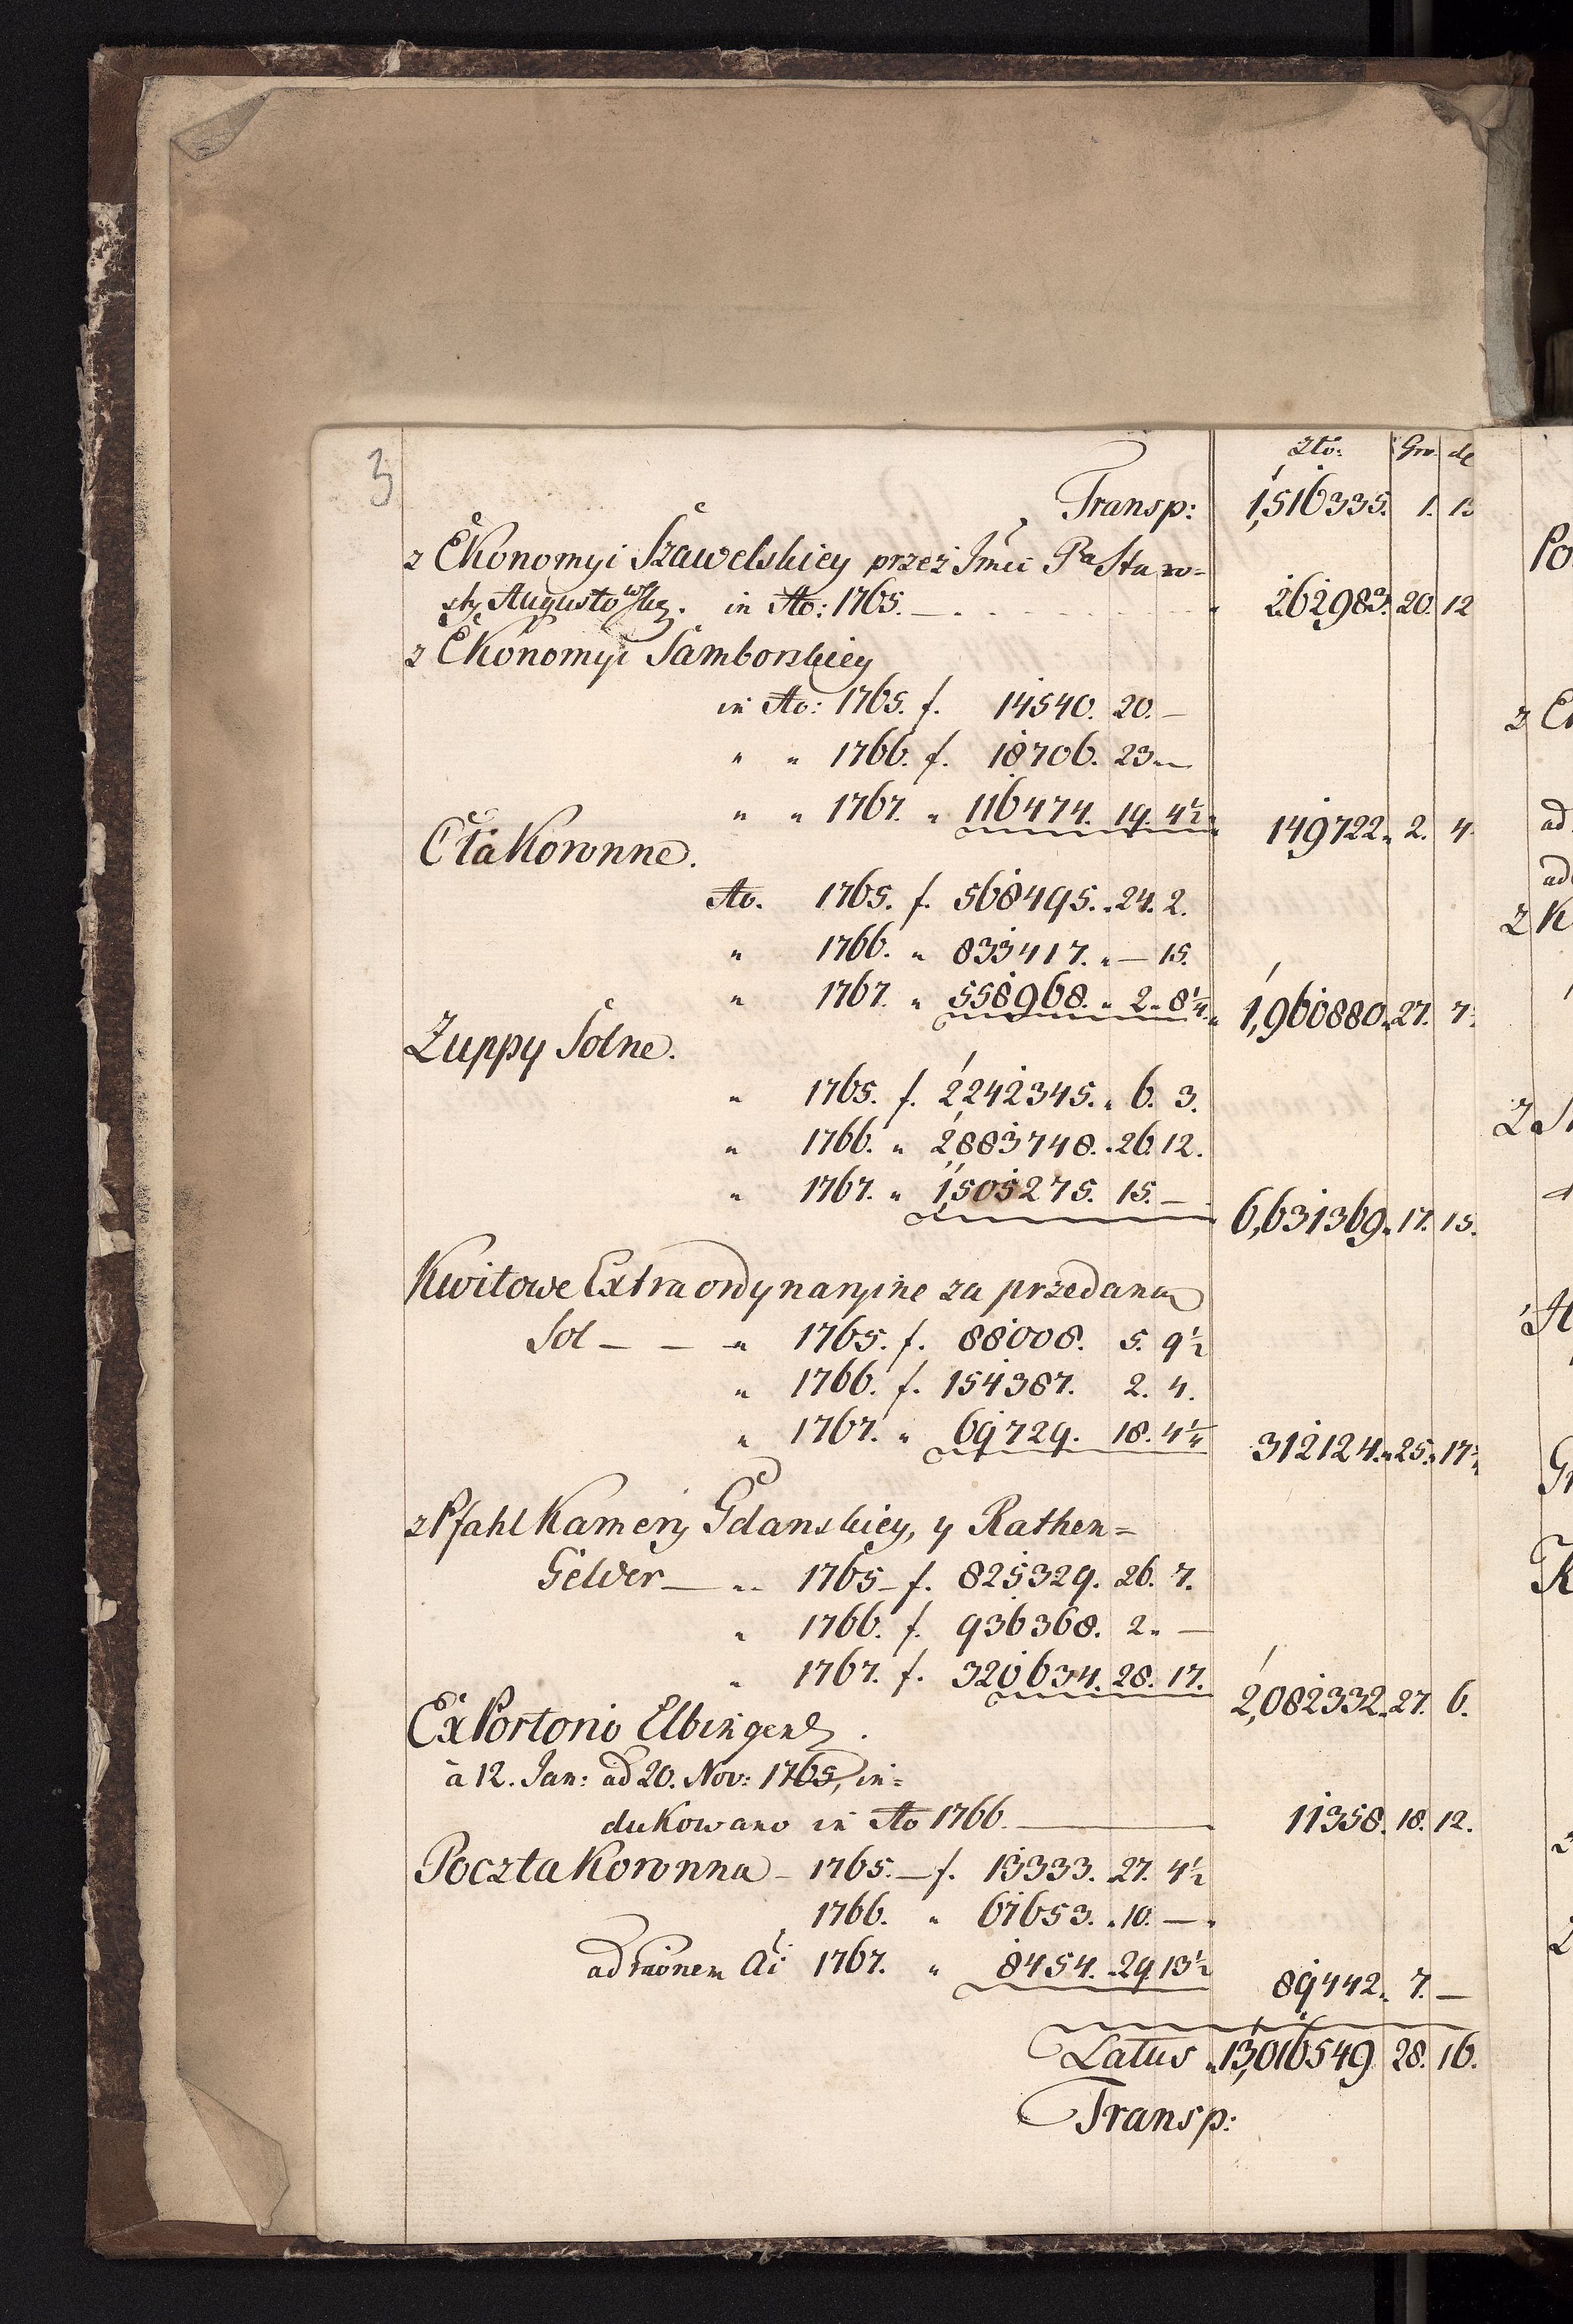 3
złto: Gro: de
Transp: 1,516335. 1. 13
z Ekonomyi Szawelskiey przez Jmci Pa Staro=
sty Augustowskg. in Ao: 1765. — 262982. 20. 12
z Ekonomyi Samborskiey
in Ao: 1765. f. 14540. 20. —
" " 1766. f. 18706. 23 " —
" " 1767. " 116474. 19. 4½ 149722. 2. 4
Cła Koronne.
Ao. 1765. f. 568495. 24. 2.
" 1766. " 833417. " — 15.
" 1767. " 558968. " 2 " 8¼ 1,960880. 27. 7
Zuppy Solne.
" 1765. f. 2242345. " 6. 3.
" 1766. " 2,883748. 26. 12.
" 1767. " 1,505275. 15. — 6,631369. 17. 15.
Kwitowe Extraordynaryine za przedaną
Sol — — " 1765. f. 88008. 5. 9½
" 1766. f. 154387. 2. 4.
" 1767. " 69729. 18. 4¼ 312124. 25. 17
z Pfahl Kamery Gdanskiey, y Rathen=
Gelder — " 1765 — f. 825329. 26. 7.
" 1766. f. 936368. 2 " —
" 1767. f. 320634. 28. 17. 2,082332. 27. 6.
Ex Portorio Elbingens
à 12. Jan: ad 20. Nov: 1765, in=
dukowano in Ao 1766. — 11358. 18. 12.
Poczta Koronna — 1765. — f. 13333. 27. 4½
1766. " 67653. " 10. —
ad raonem Ai 1767. " 8454. 29 13½ 89442. 7. —
Latus 13,016549 28. 16.
Transp:
Po
z Ek
ad
ad
z K